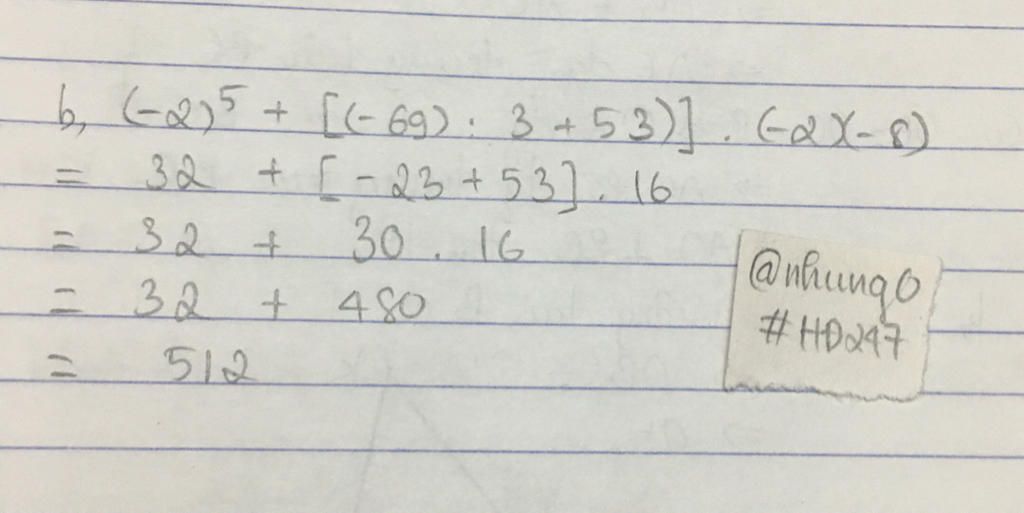 b, (-2)⁵ + [(-69) : 3 + 53)] . (-2)(-8)
= 32 + [-23 + 53] . 16
= 32 + 30 . 16
= 32 + 480
= 512
@nhung0
#HD247